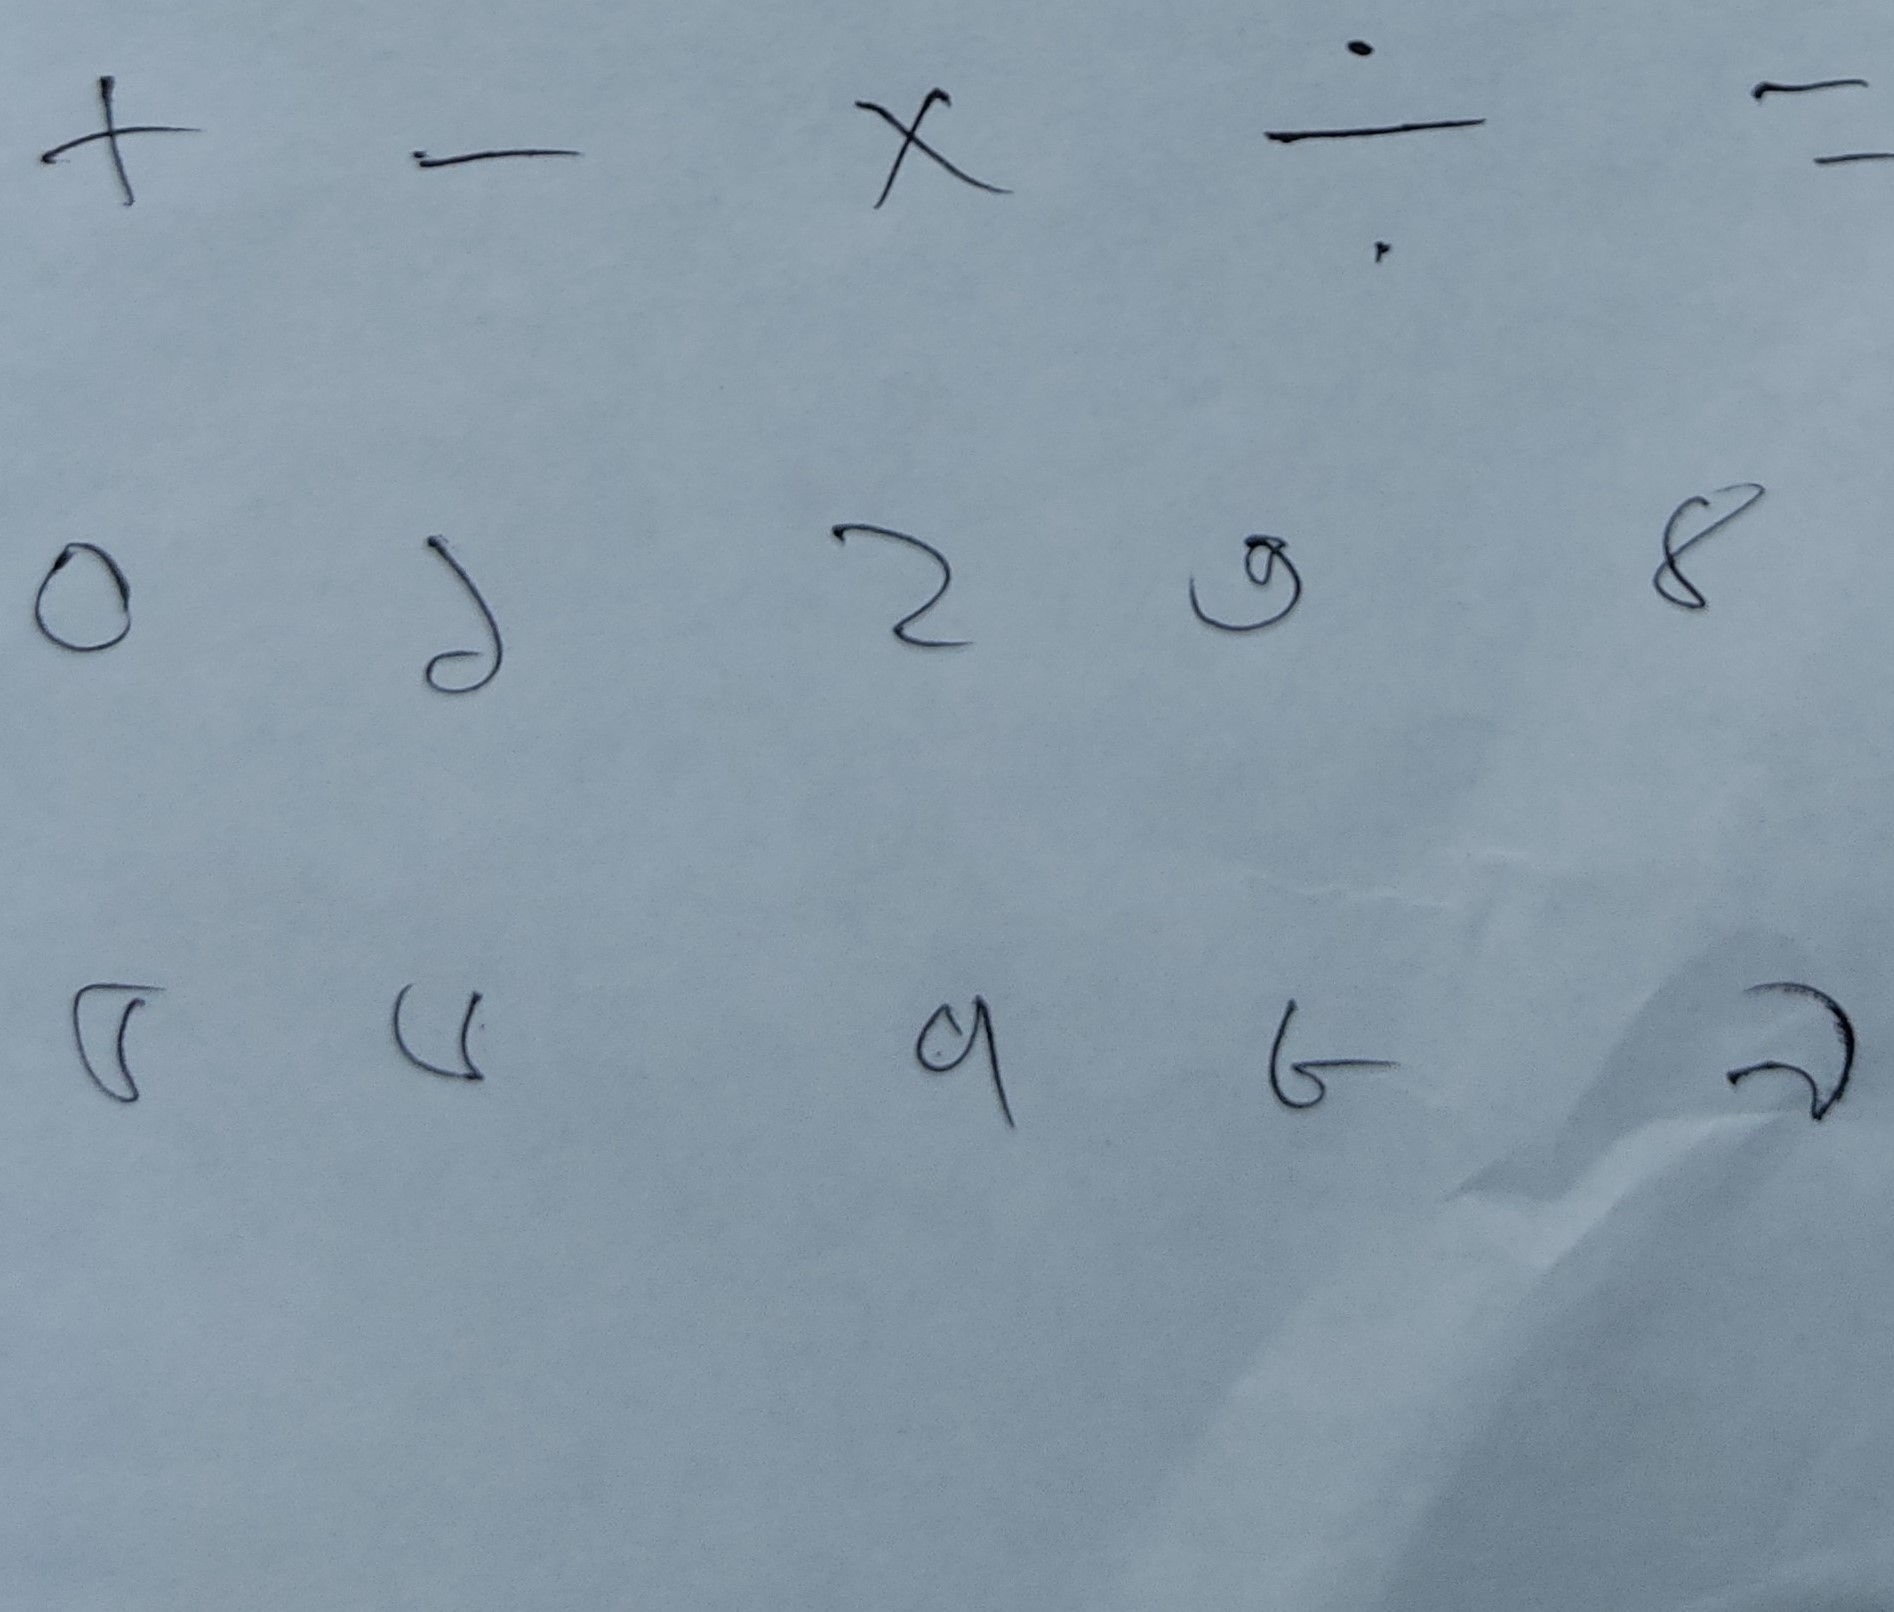 + - × ÷ =
০ ১ ২ ৩ ৪
৫ ৬ ৭ ৮ ৯